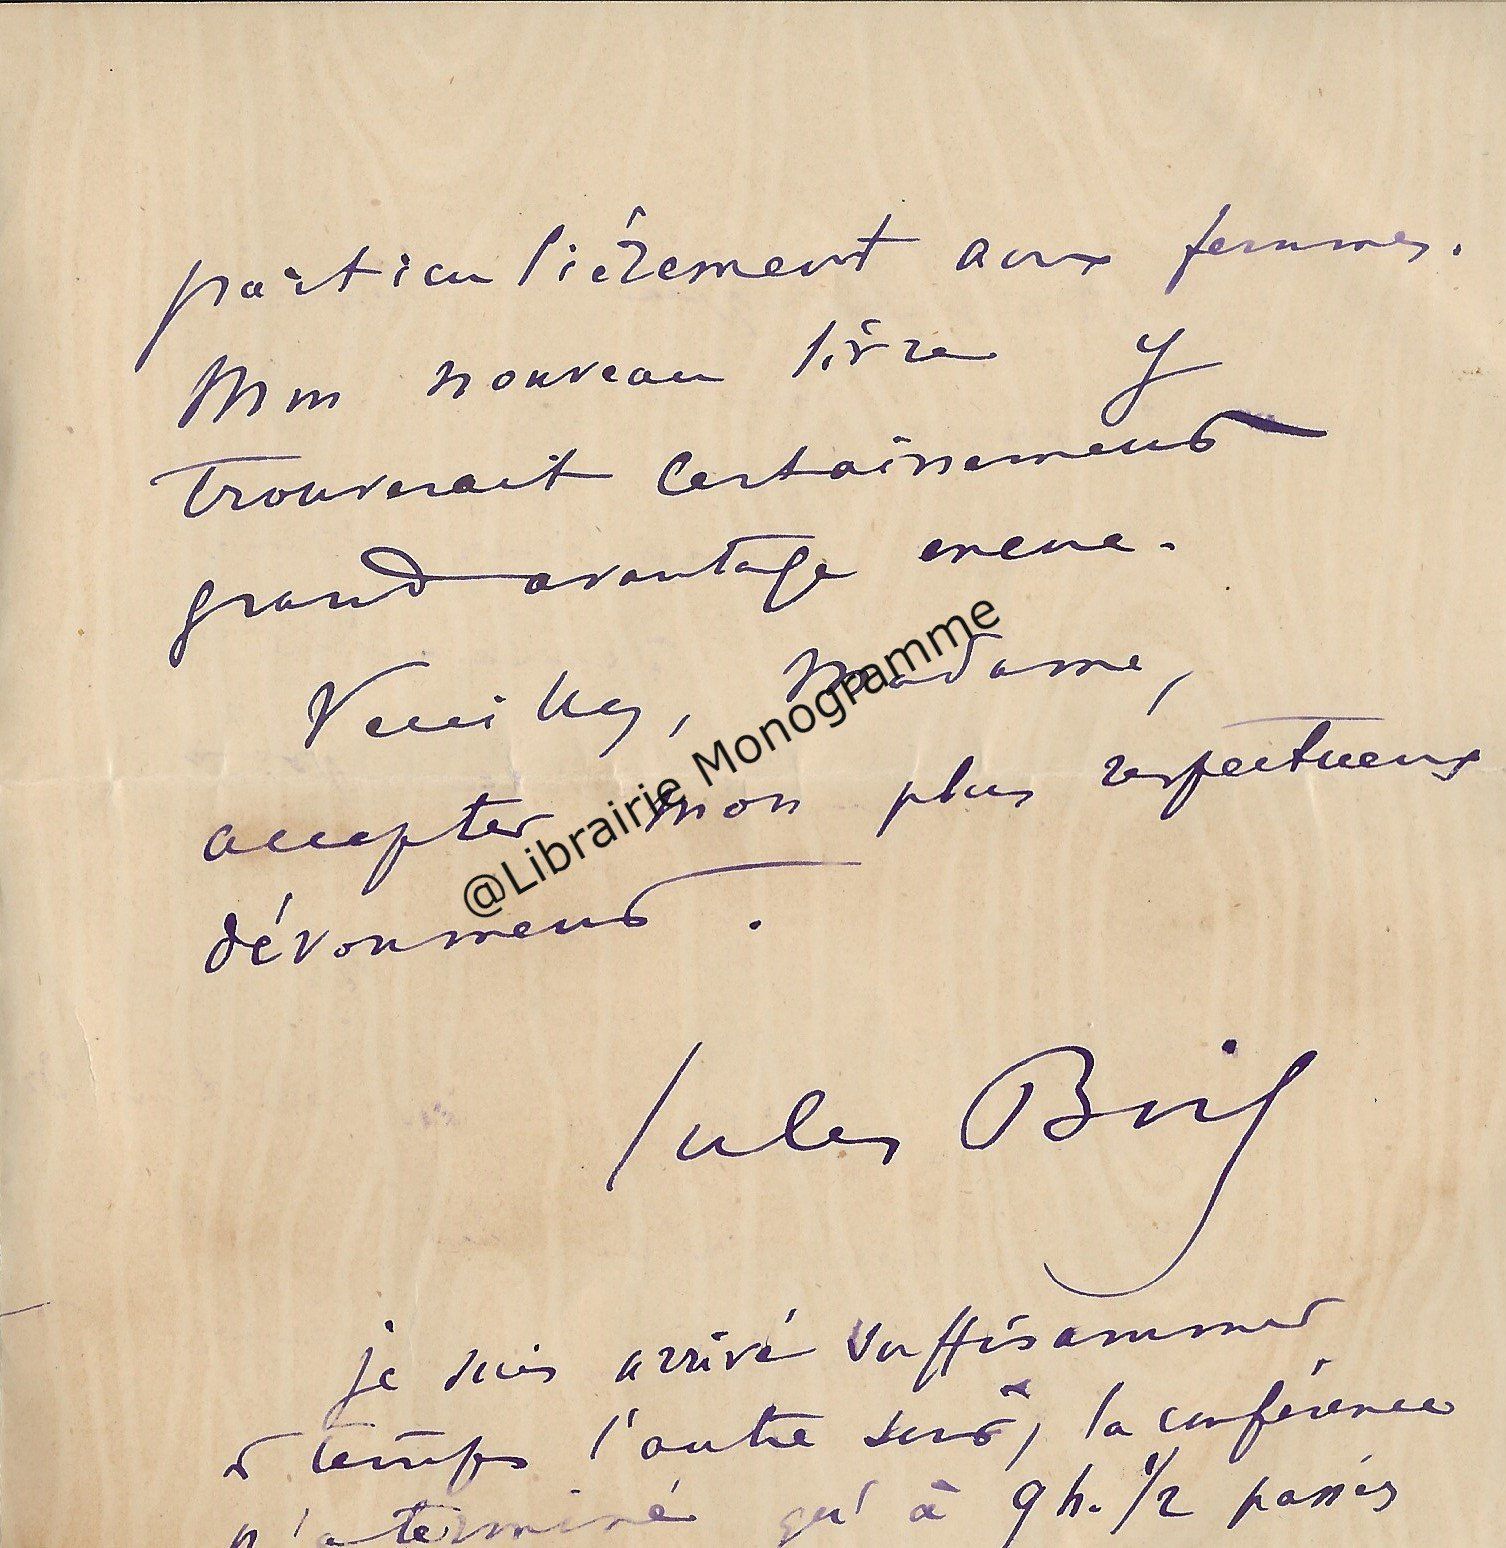 particulièrement aux femmes.
Mon nouveau livre y
trouverait certainement
grand avantage encore.
Veuillez, Madame,
accepter mon plus respectueux
dévouement.
@Librairie Monogramme
Jules Bois
je suis arrivé suffisamment
à temps l'autre soir, la conférence
n'a terminé qu'à 9 h. 1/2 passés